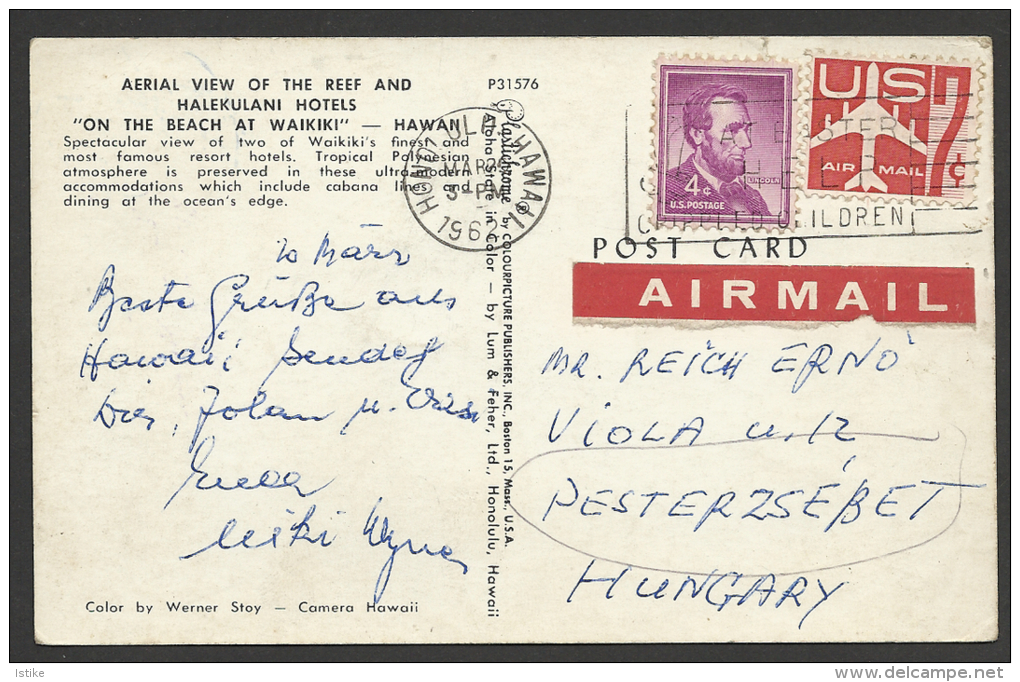 AERIAL VIEW OF THE REEF AND
HALEKULANI HOTELS
"ON THE BEACH AT WAIKIKI" — HAWAII
Spectacular view of two of Waikiki's finest and
most famous resort hotels. Tropical Polynesian
atmosphere is preserved in these ultra-modern
accommodations which include cabana lined and
dining at the ocean's edge.
P31576
HONOLULU, HAWAII
MAR 26
5 - PM
1962
4¢
LINCOLN
U.S. POSTAGE
US
7¢
AIR MAIL
EASTER
CRIPPLED CHILDREN
POST CARD
AIRMAIL
Plastichrome ® by COLOURPICTURE PUBLISHERS, INC., Boston 15, Mass., U.S.A.
Aloha State in Color — by Lum & Feher, Ltd., Honolulu, Hawaii
10 März
Beste Grüße aus
Hawaii sendet
Dir, Jolan u.
MR. REICH ERNÖ
VIOLA u. 12
PESTERZSÉBET
HUNGARY
Color by Werner Stoy — Camera Hawaii
Istike
delcampe.net